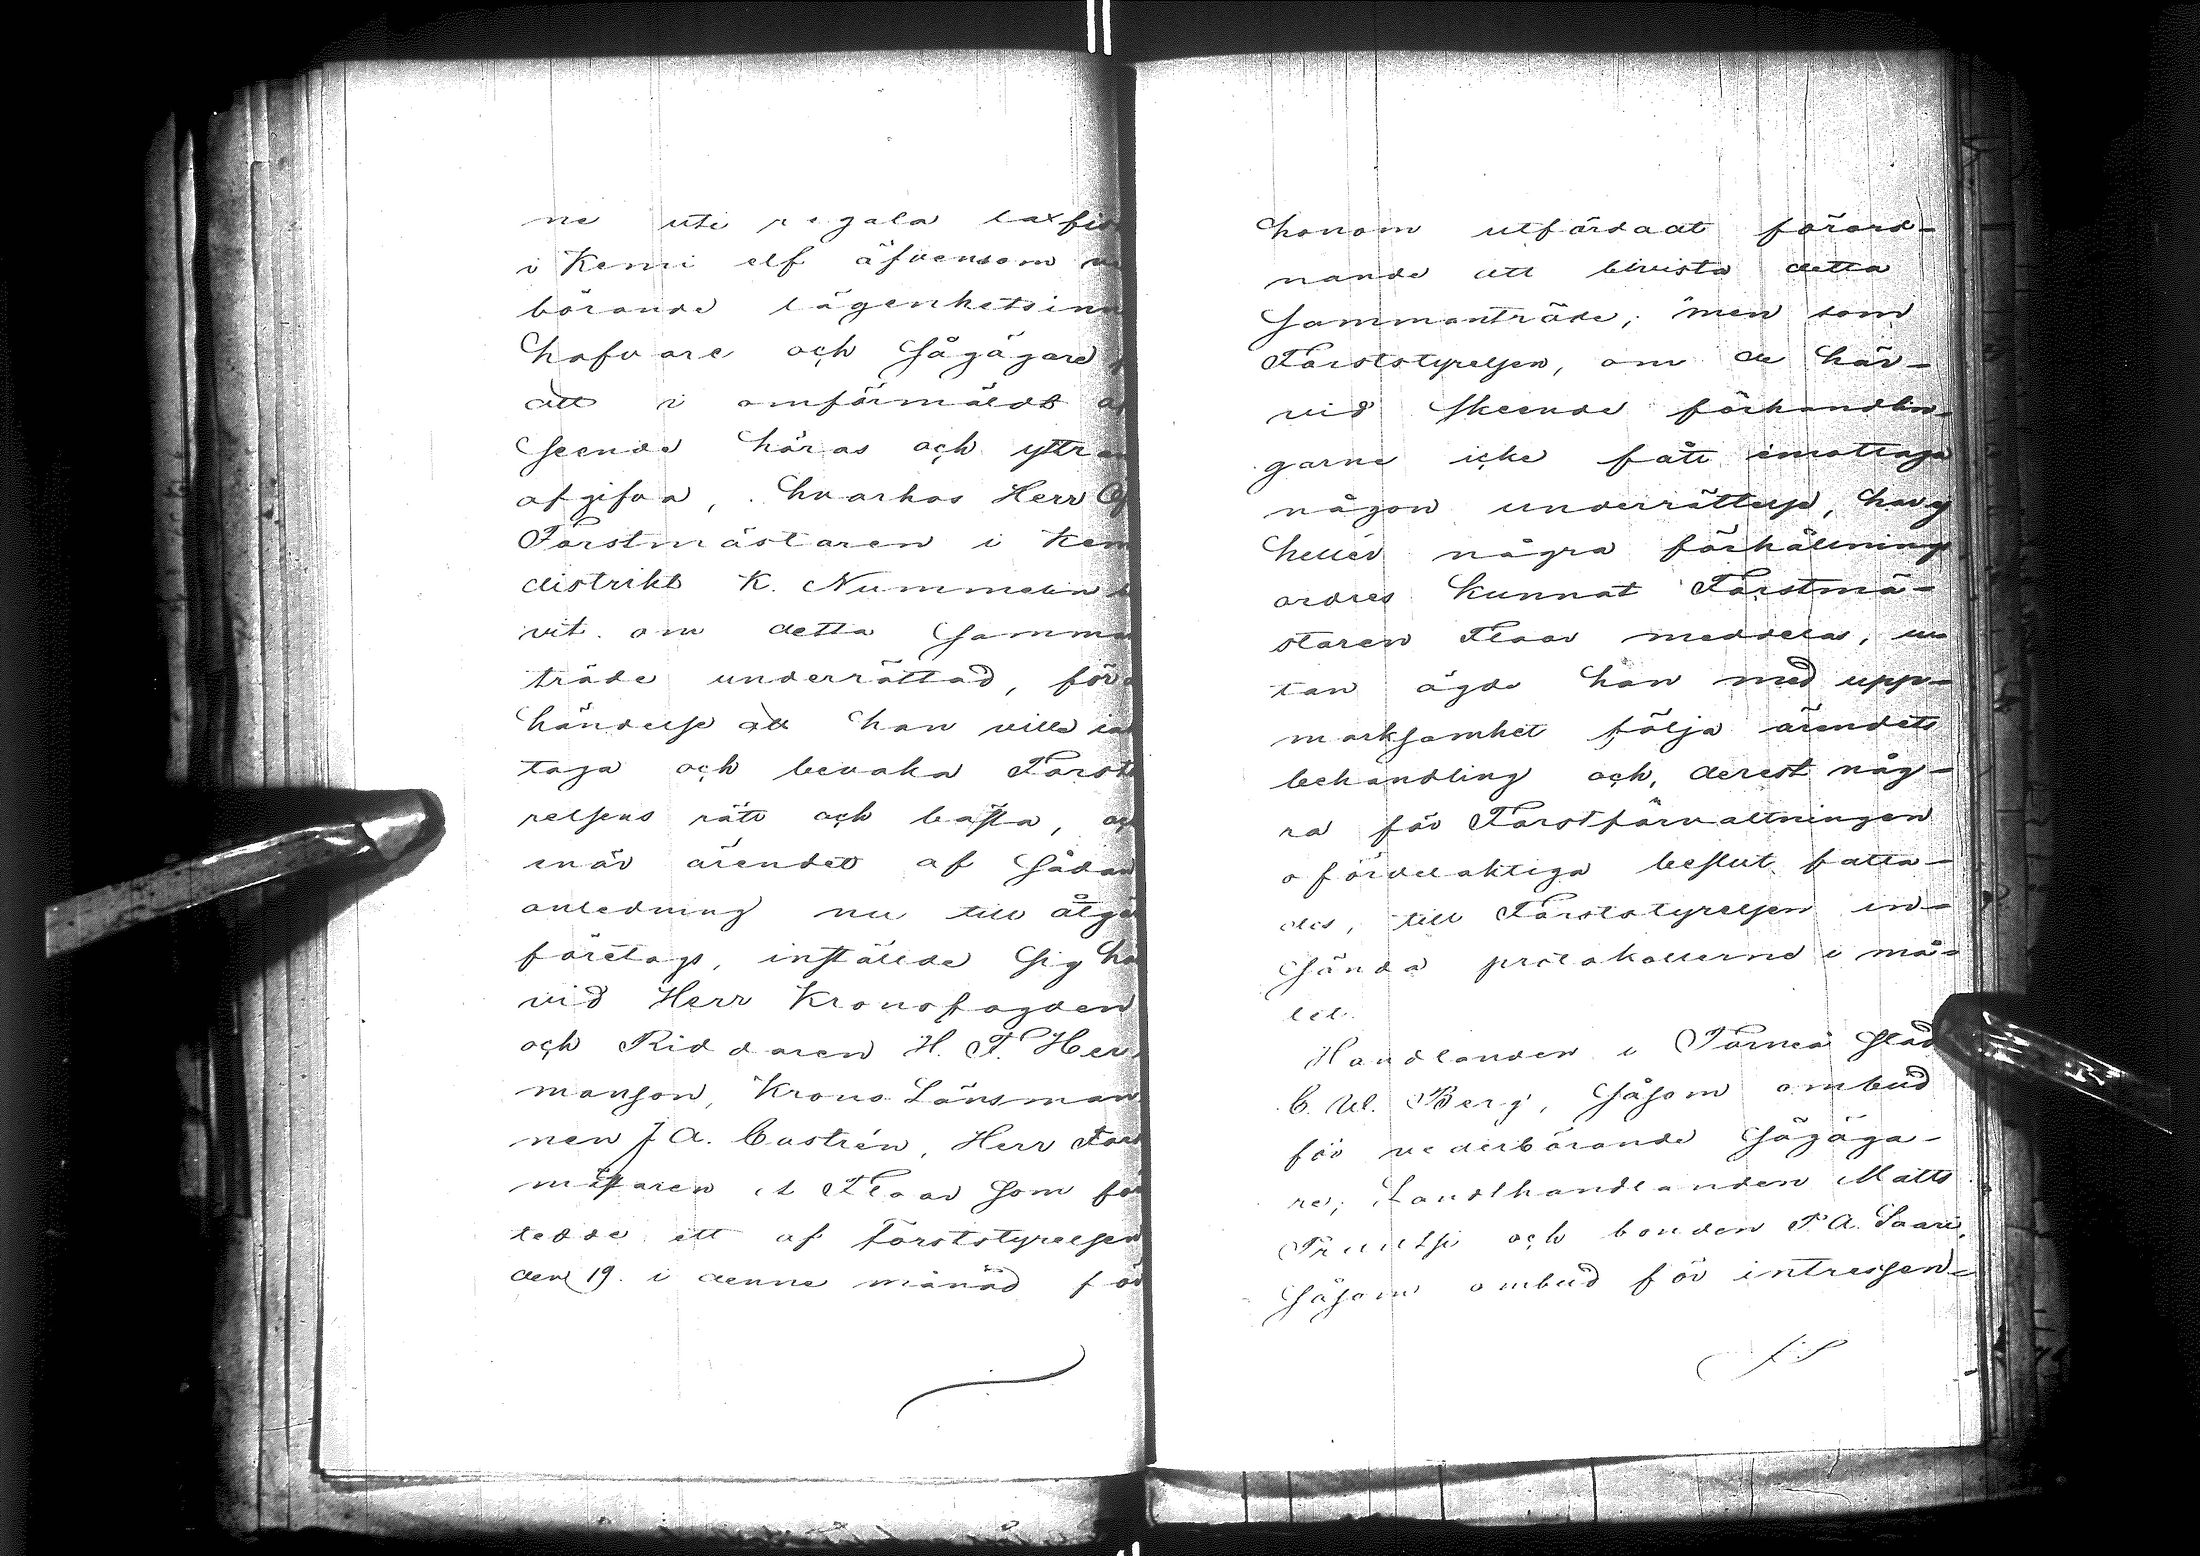 ne uti regala laxfis
i Kemi elf äfvensom ve
börande lägenhetsinn
hafvare och sågägare
att i omförmäldt a
seende höras och yttra
afgifva, hvarhos Herr Öf
Forstmästaren i Kem
distrikt K. Nummelin b
vit om detta samma
träde underrättad, för
händelse att han ville iak
taga och bevaka Forst
relsens rätt och bästa, och
enär ärendet af sådan
anledning nu till åtgä
företags, inställde sig hä
vid Herr Kronofogden
och Riddaren H. F. Her
manson, Krono Länsman
nen J A. Castrén, Herr Fors
mästaren A Floor som fö
tedde ett af Forststyrelsen
den 19. i denne månad för
honom utfärdadt förord-
nande att bivista detta
sammanträde; men som
Forststyrelsen, om de här-
vid skeende förhandlin-
garne icke fått emottaga
någon underrättelse, hvarj
heller några förhållning
ordres kunnat Forstmä-
staren Floor meddelas, u
tan ägde han med upp-
marksamhet följa ärendets
behandling och, derest någ-
ra för Forstförvaltningen
ofördelaktiga beslut fatta-
des, till Forststyrelsen in-
sända protokollerne i må-
let.
Handlanden i Torneå stad
C. W. Berg, såsom ombud
för vederbörande sågäga-
re; Landthandlanden Matts
och bonden F A. Saari,
såsom ombud för intressen-